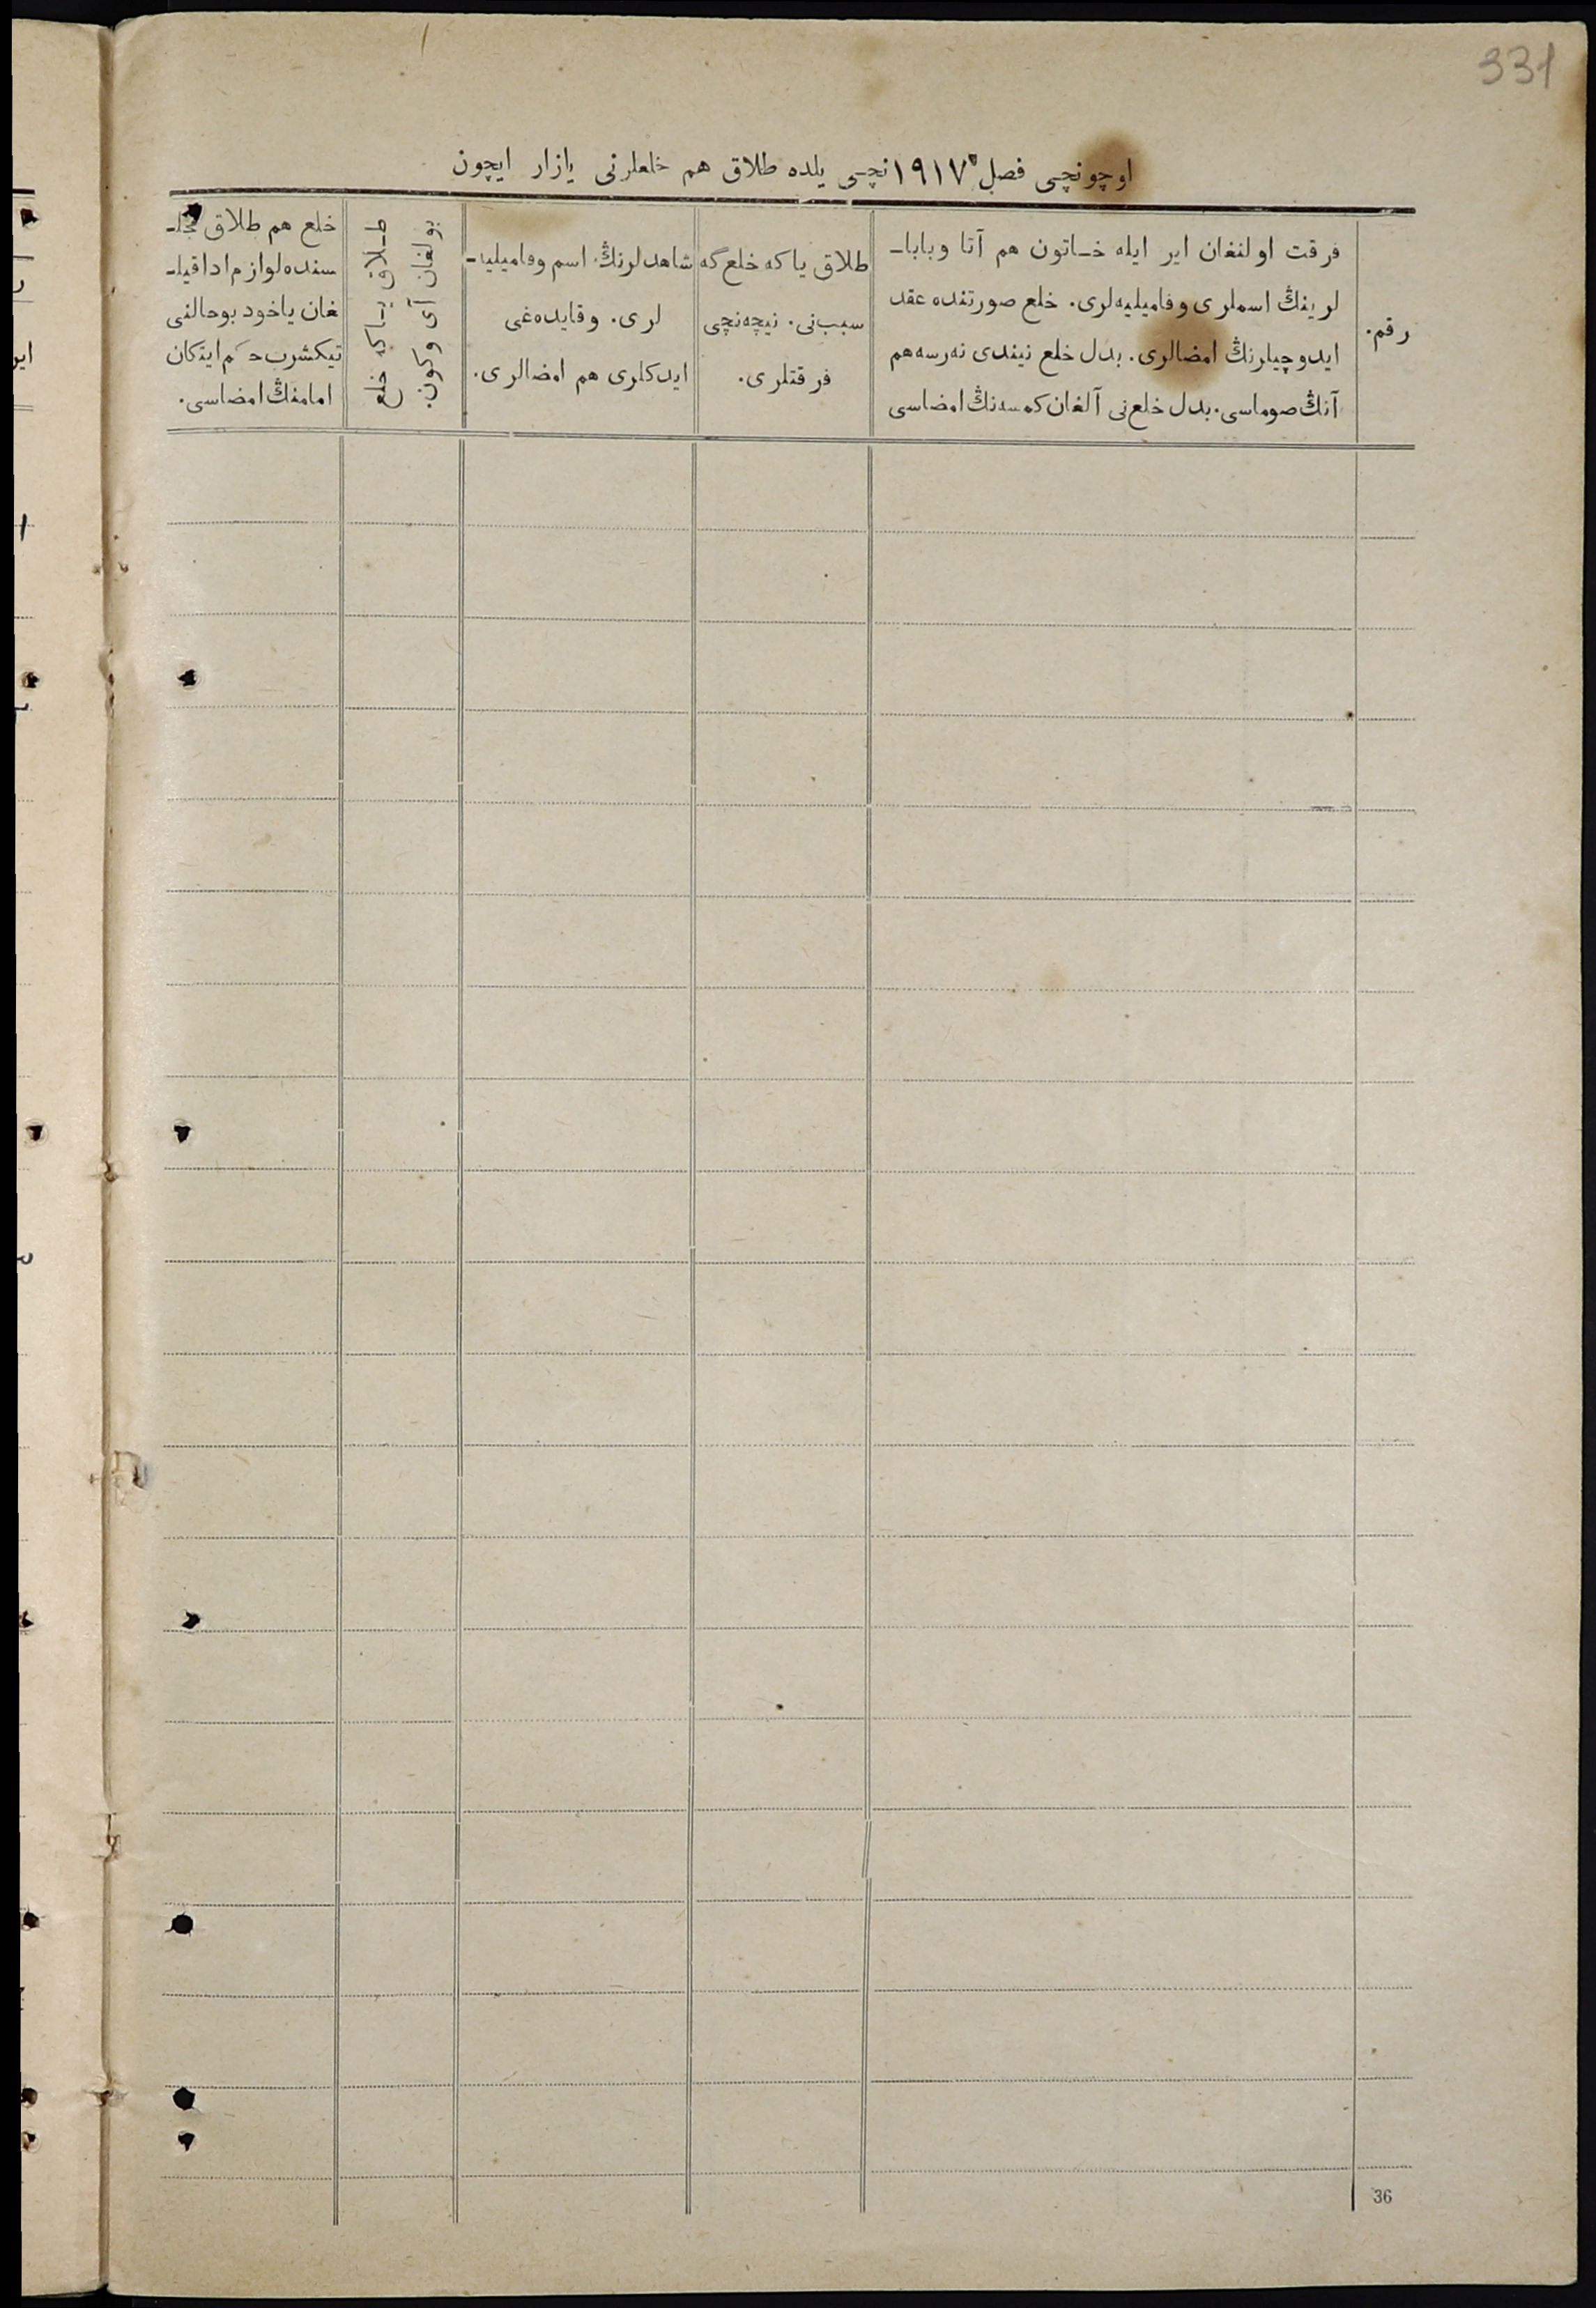 331
اوچونچی فصل ۱۹۱۷ نچی یلده طلاق هم خلعلرنی یازار ایچون
رقم.
فرقت اولنغان ایر ایله خـاتون هم آتا وبابا-
لرینڭ اسملری وفامیلیه‌لری. خلع صورتنده عقد
ایدوچیلرنڭ امضالری. بدل خلع نیندی نه‌رسه هم
آنڭ صوماسی. بدل خلع‌نی آلغان کمسه‌نڭ امضاسی
طلاق یا که خلع گه
سبب‌نی. نیچه‌نچی
فرقتلری.
شاهدلرنڭ اسم وفامیلیه-
لری. وقایده‌غی
ایدکلری هم امضالری.
طـلاق یـاکه خلع
بولغان آی وکون.
خلع هم طلاق مجلـ
سنده لوازم ادا قیلـ
غان یاخود بوحالنی
تیکشرب حکم ایتکان
امامنڭ امضاسی.
36